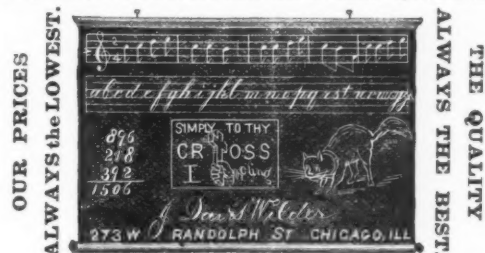 OUR PRICES
ALWAYS the LOWEST.
2
4
abcdefghijklmnopqrstuvwxyz
896
218
392
1506
SIMPLY TO THY
CROSS
I cling
J. Davis Wilder
273 W RANDOLPH ST CHICAGO, ILL
THE QUALITY
ALWAYS THE BEST.